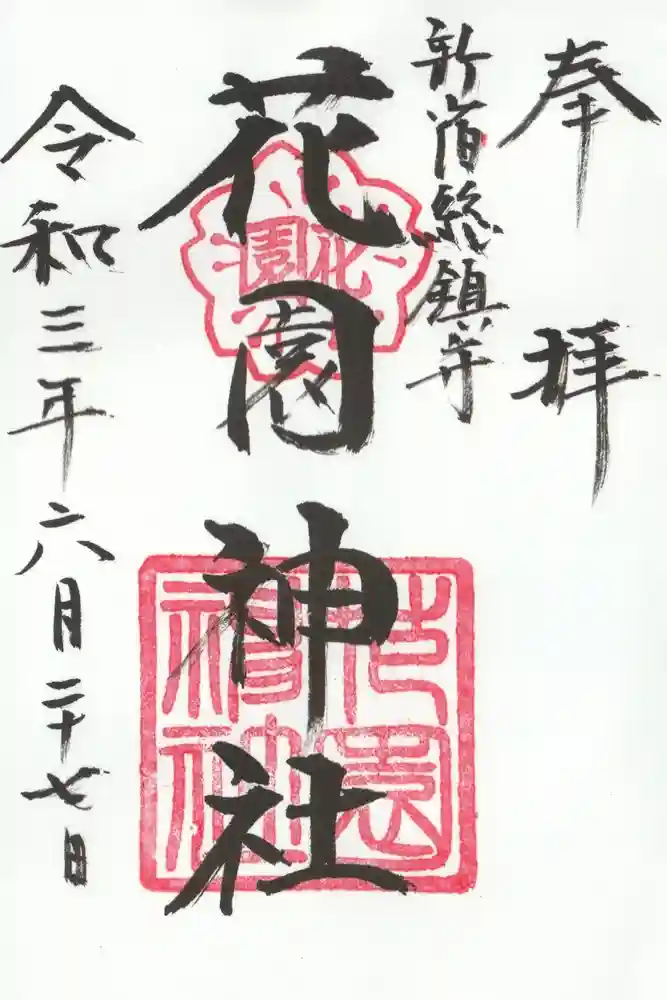 奉拝
新宿総鎮守
花園神社
令和三年六月二十七日
花園
花園神社